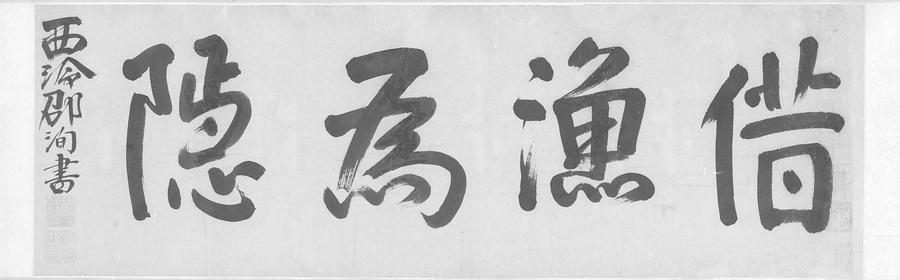 借漁為隱
西泠邵洵書